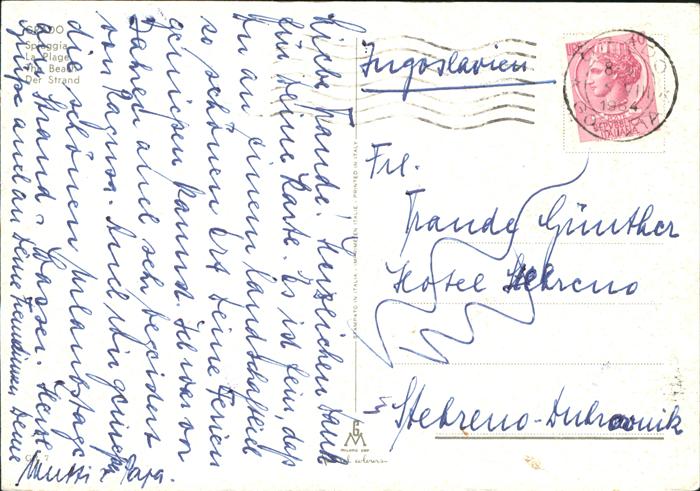 GRADO
Spiaggia
La Plage
The Beach
Der Strand
Liebe Traude! Herzlichen Dank
für Deine Karte. Es ist fein, daß
Du an einem landschaftlich
so schönen Ort Deine Ferien
genießen kannst. Ich war vor
Jahren auch sehr begeistert
von Ragusa. Auch wir genießen
die schönen Urlaubstage
am Strand u. Wasser. Herzl.
Grüße auch an Deine Freundinnen Deine
Mutti u. Papa.
Jugoslavien
GRADO
1964
GORIZIA
REPUBBLICA
ITALIANA
Frl.
Traude Günther
Hotel Stebreno
in Stebreno-Dubrovnik
STAMPATO IN ITALIA - IMPRIMÉ EN ITALIE - PRINTED IN ITALY
MILANO